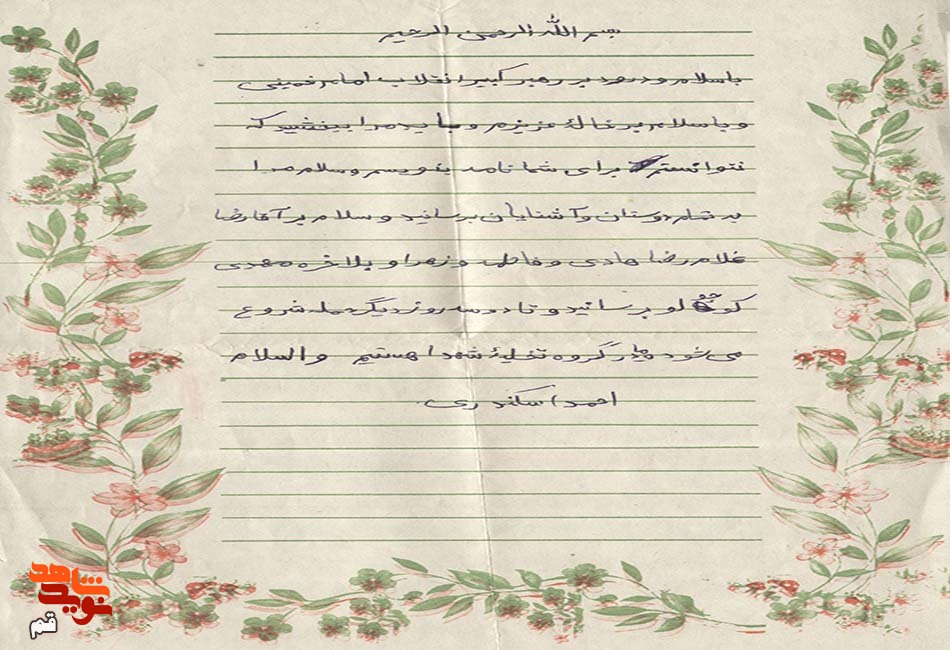 بسم الله الرحمن الرحیم
باسلام و درود بر رهبر کبیر انقلاب امام خمینی
و با سلام بر خالهٔ عزیزم و باید مرا ببخشید که
نتوانستم برای شما نامه بنویسم و سلام مرا
به تمام دوستان و آشنایان برسانید و سلام بر آقا رضا
غلام رضا هادی و فاطمه و زهرا و بلاخره مهدی
کوچولو برسانید و تا دو سه روز دیگر حمله شروع
می‌شود ما در گروه تخلیهٔ شهدا هستیم والسلام
احمد اسکندری
نوید شاهد
قم